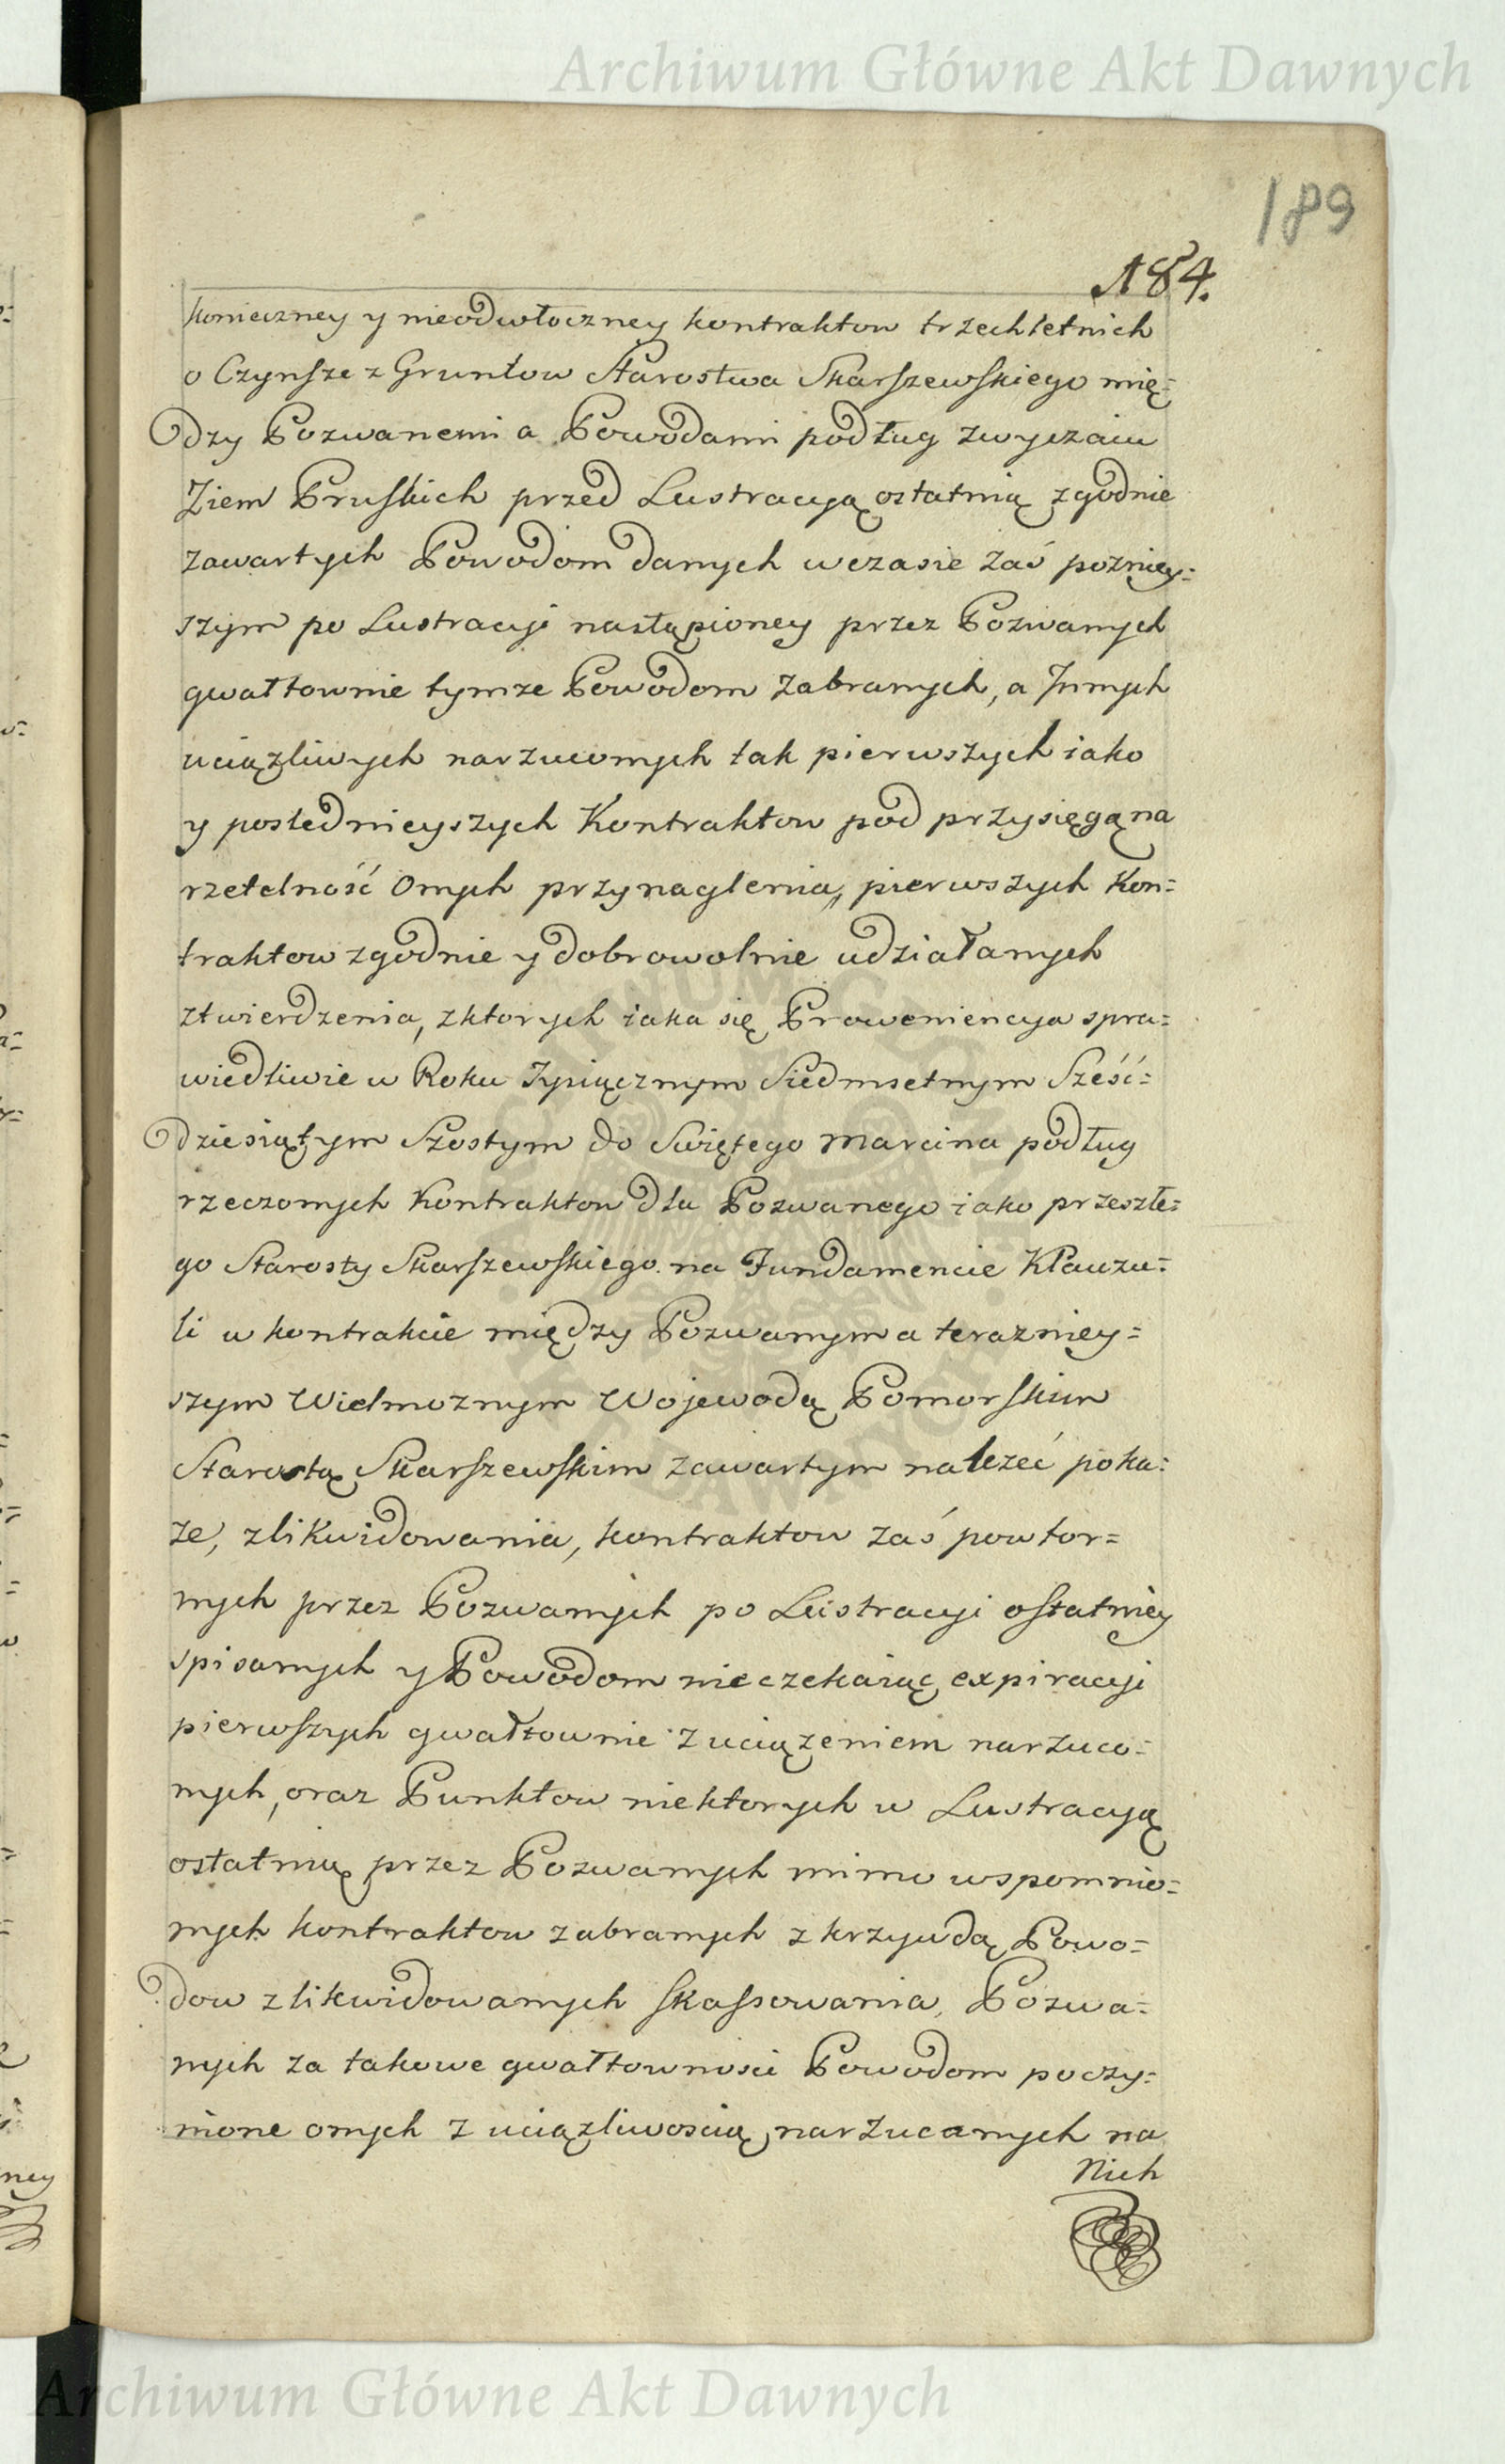 Archiwum Główne Akt Dawnych
189
184.
konieczney y nieodwłoczney kontraktow trzechletnich
o Czynsze z Gruntow Starostwa Skarszewskiego mię=
dzy Pozwanemi a Powodami podług zwyczaiu
Ziem Pruskich przed Lustracyą ostatnią zgodnie
zawartych Powodom danych w czasie zaś poznięy=
szym po Lustracyi nastąpioney przez Pozwanych
gwałtownie tymże Powodom zabranych, a Jnnych
uciązliwych narzuconych tak pierwszych iako
y poslednieyszych Kontraktow pod przysięgą na
rzetelność onych przynaglenia, pierwszych Kon=
traktow zgodnie y dobrowolnie udziałanych
ztwierdzenia, z ktorych iaka się Proweniencya spra=
wiedliwie w Roku Tysiącznym Siedmsetnym Sześć=
dziesiątym Szostym do Swiętego Marcina podług
rzeczonych Kontraktow dla Pozwanego iako przeszłe=
go Starosty Skarszewskiego na Fundamencie Klauzu=
li w kontrakcie między Pozwanym a terazniey=
szym Wielmoznym Wojewodą Pomorskim
Starostą Skarszewskim zawartym nalezeć poka=
ze, zlikwidowania, kontraktow zaś powtor=
nych przez Pozwanych po Lustracyi ostatniey
spisanych y Powodom nieczekaiąc expiracyi
pierwszych gwałtownie z uciązeniem narzuco=
nych, oraz Punktow niektorych w Lustracyą
ostatnią przez Pozwanych mimo wspomnio=
nych kontraktow zabranych z krzywdą Powo=
dow zlikwidowanych skassowania, Pozwa=
nych za takowe gwałtownosci Powodom poczy=
nione onych z uciązliwoscią narzucanych na
Nich
Archiwum Główne Akt Dawnych